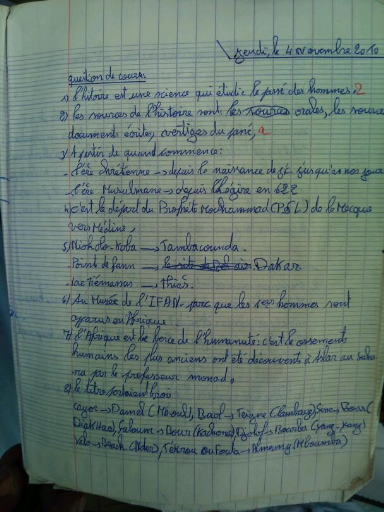 jeudi, le 4 Novembre 2010
question de cours
1) l'histoire est une science qui étudie le passé des hommes. 2
2) les sources de l'histoire sont: les sources orales, les sources
documents écrites, vertiges du passé,
3) A partir de quand commence:
- l'ère chrétienne → depuis la naissance de jusqu'à nos jours
l'ère Musulmane → depuis l'hégire en 622
4) c'est le départ du Prophète Mouhammad (PSL) de la Mecque
vers Médine,
5) Niokolo-Koba → Tambacounda.
Point de fann → Dakar
Lac tiemassas → thiès.
6) Au Musée de l'IFAN, parc que les 1ers hommes sont
apparus en Afrique
7) l'Afrique est le berceau de l'humanité: c'est les ossements
humains les plus anciens ont été découverts à
par le professeur monod,
8) le titre
cayor → Damel (Mboul), Baol → Teigne (Lambaye), Sine → Bour (
Diakhao), Saloum → Bour (Kaohone), Djolof → Bourba (Yang-Yang)
Walo → Brack (Nder), Tékrour ou Fouta → Almamy (Mboumba)